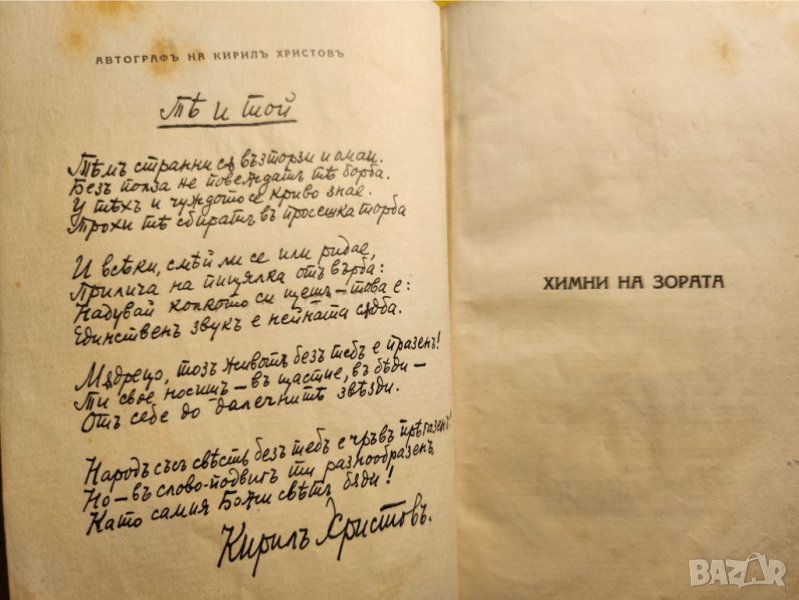 АВТОГРАФЪ НА КИРИЛЪ ХРИСТОВЪ
Тѣ и той
Тѣмъ странни сѫ възторзи и омаи.
Безъ полза не повеждатъ тѣ борба.
У тѣхъ и чуждото се криво знае.
Трохи тѣ сбиратъ въ просешка торба
И всѣки, смѣй ли се или ридае,
Прилича на пищялка отъ върба:
Надувай колкото си щешъ – това е:
Единственъ звукъ е нейната сѫдба.
Мѫдрецо, тозъ животъ безъ тебъ е празенъ!
Ти свое носишъ – въ щастие, въ бѣди –
Отъ себе до далечнитѣ звѣзди.
Народъ съсъ свѣсть безъ тебъ е чръвъ прѣгазенъ!
Но – въ слово-подвигъ ти разнообразенъ,
Като самия Божи свѣтъ бѫди!
Кирилъ Христовъ.
ХИМНИ НА ЗОРАТА
BAZAR